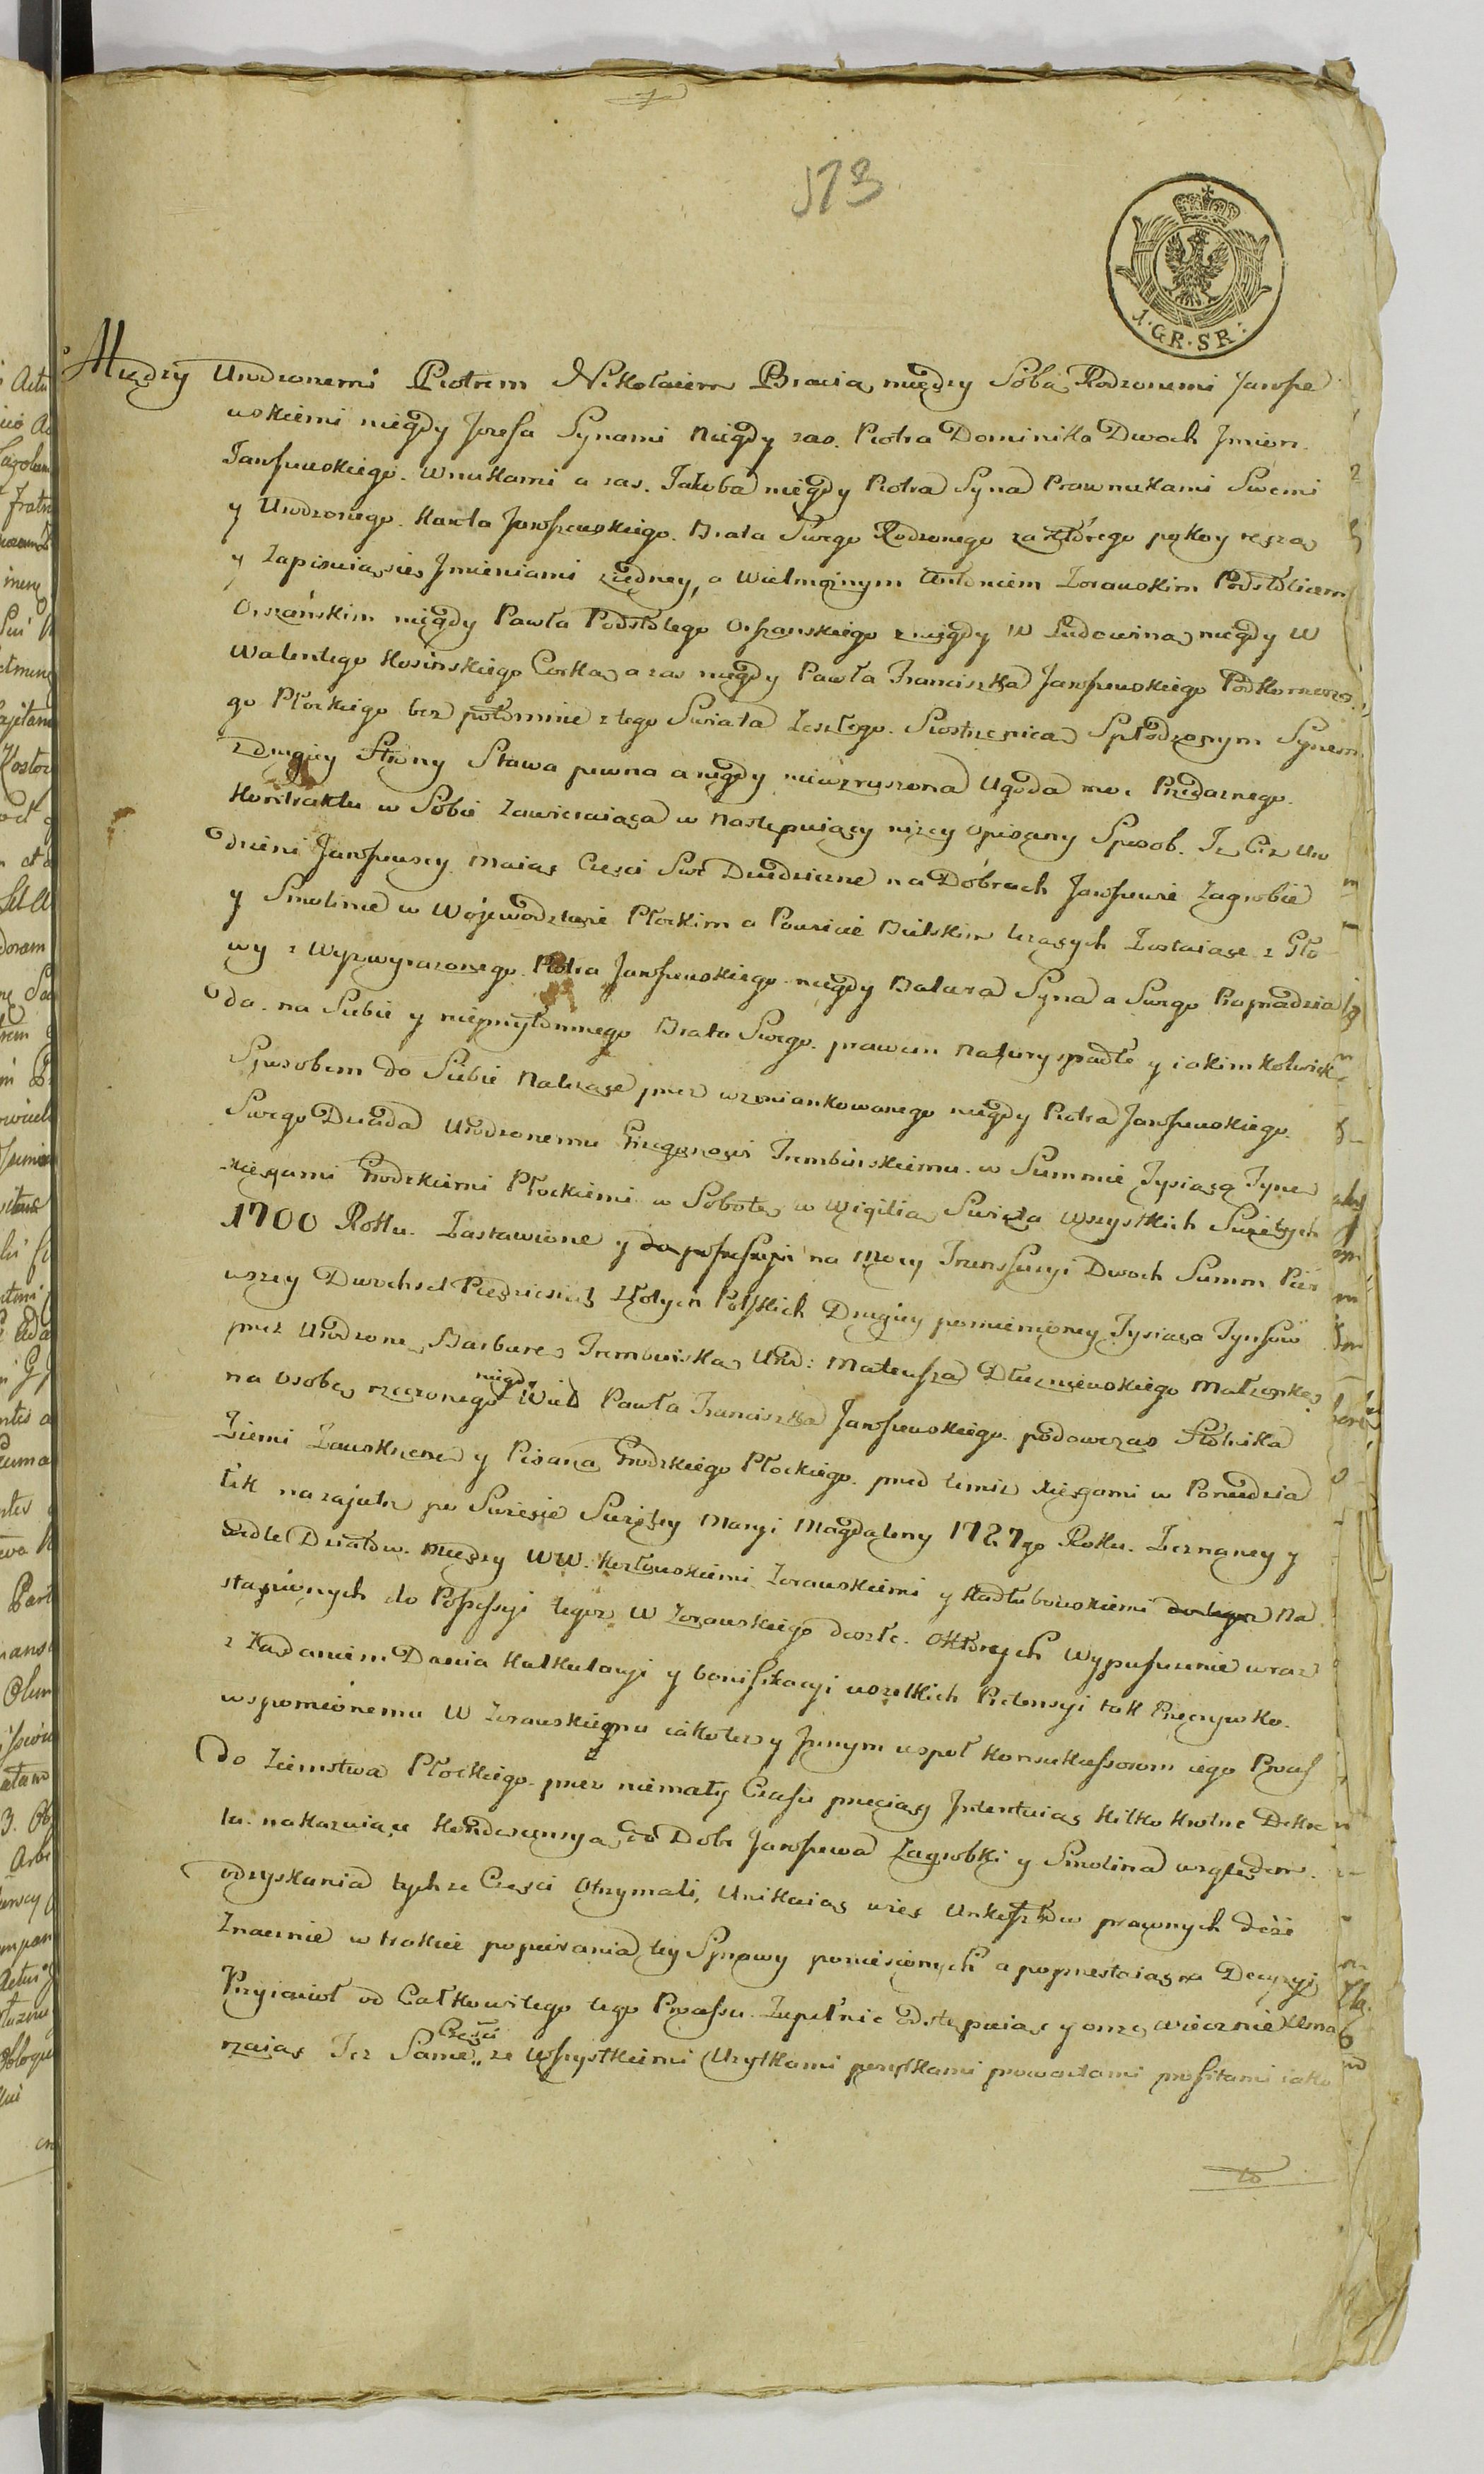 573
1·GR·SR:
Między Urodzonemi Piotrem Nikołaiem Bracią między Sobą Rodzonemi Jarosze
wskiemi niegdy Jozefa Synami niegdy zas. Piotra Dominika Dwoch Jmion.
Jaroszewskiego. Wnukami a zas. Jakoba niegdy Piotra Syna Prawnukami Swemi
y Urodzonego. Karola Jaroszewskiego. Brata Swego Rodzonego za ktorego ręczą
y Zapisuią się Jmieniami z iedney, a Wielmoznym Antoniem Zorawskim Podstolicem
Orszańskim niegdy Pawła Podstolego Orszanskiego z niegdy W Ludowiną niegdy W
Walentego Kosinskiego Corką a zas niegdy Pawła Franciszka Jaroszewskiego Podkomorze
go Płockiego bez potomnie z tego Swiata Zeszłego. Siostrzenicą Spłodzonym Synem
z drugiey Strony Stawa pewna a nigdy niewzruszona Ugoda moc Przedaznego.
Kontraktu w Sobie Zawieraiąca w Następuiący nizey opisany Sposob. Jz Ciz Uro
dzeni Jaroszewscy maiąc Części Swe Dziedziczne na Dobrach Jaroszewie Zagrobie
y Smolinie w Woiewodztwie Płockim a Powiecie Bielskim lezących Zostaiące z Gło
wy z Wyzwyrazonego. Piotra Jaroszewskiego niegdy Syna a Swego Pradzia
da. na Siebie y nieprzytomnego Brata Swego. prawem Natury spadłe y iakimkolwiek
Sposobem do Siebie Nalezące przez wzmiankowanego niegdy Piotra Jaroszewskiego.
Swego Dziada Urodzonemu Grzegorzowi Trembinskiemu. w Summie Tysiąca Tynf
Xięgami Grodzkiemi Płockiemi w Sobotę w Wigilią Swięta Wszystkich Swiętych
1700 Roku. Zastawione y do possessyi na Mocy Transfuzyi Dwoch Summ Pier
wszey Dwochset Piędziesiąt Złotych Polskich Drugiey pomienioney Tysiąca Tynfow
przez Urodzoną Barbarę Trembinską Urod: Mateusza Dłuzniewskiego Małzonkę
na Osobę rzeczonego niegdy Wiel Pawła Franciszka Jaroszewskiego. podowczas Stolnika
Ziemi Zawskrzen y Pisarza Grodzkiego Płockiego. przed temiz Xięgami w Poniedzia
łek nazajutrz po Swięcie Swiętey Maryi Magdaleny 1727go Roku. Zeznaney y
wedle Działow. Między WW. Kozłowskiemi Zorawskiemi y Kadłubowskiemi na
stąpionych do Possessyi tegoz W Zorawskiego doszłe. O których Wypuszczenie wraz
z Ządaniem Dania Kalkulacyi y bonifikacyi wszelkich Pretensyi tak Przeciwko.
wspomionemu W Zorawskiemu iakotez y Jnnym wspoł Konsukcessorom iego Process
do Ziemstwa Płockiego. przez niemały Czasu przeciąg Jntentuiąc kilkokrotne Dekre
ta. nakazuiące Kondescensyą do Dobr Jaroszewa Zagrobki y Smolina względem.
odzyskania tychze Części Otrzymali, Unikaiąc więc Unkosztow prawnych dość
Znacznie w trakcie popierania tey Sprawy poniesionych a poprzestaiąc na Decyzyi
Przyiacioł od Całkowitego tego Processu. Zupełnie Odstępuiąc y onze wiecznie Uma
rzaiąc Tez Same Części ze Wszystkiemi Uzytkami pozytkami prowentami profitami iako
to